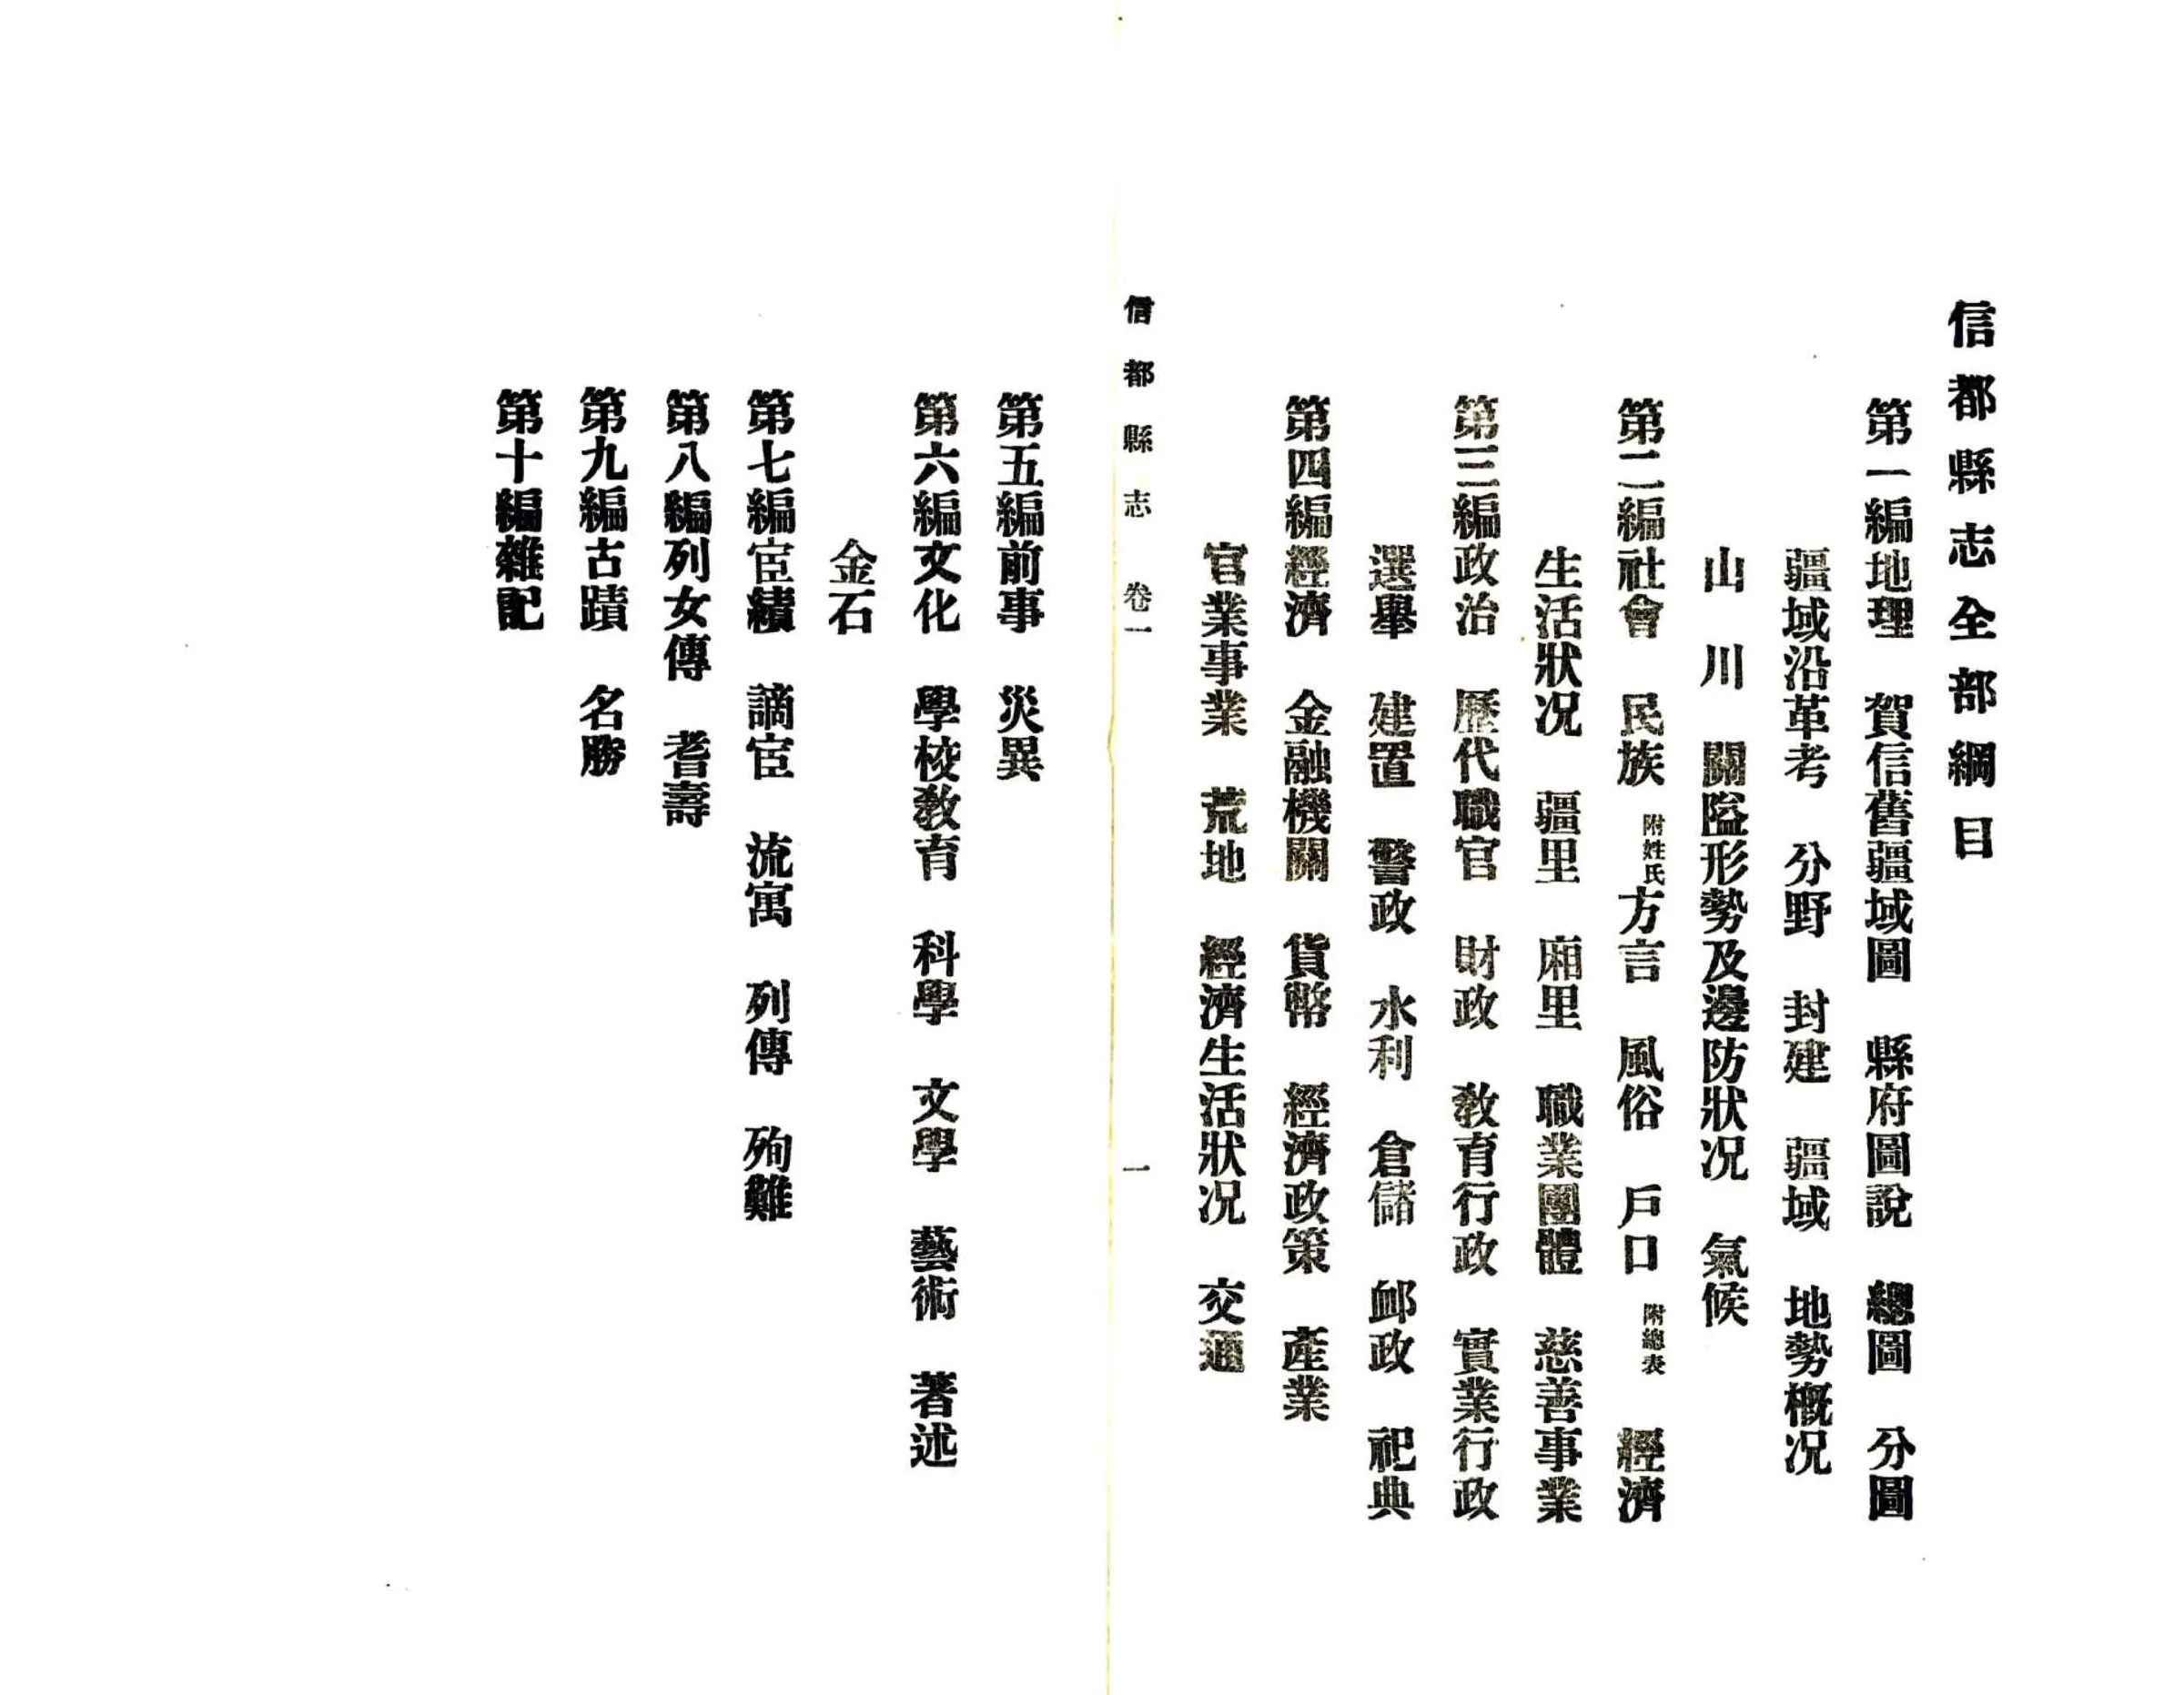 信都縣志全部綱目
第一編地理　賀信舊疆域圖　縣府圖說　總圖　分圖
疆域沿革考　分野　封建　疆域　地勢概况
山　川　關隘形勢及邊防狀况　氣候
第二編社會　民族　附姓氏　方言　風俗　戶口　附總表　經濟
生活狀况　疆里　廂里　職業團體　慈善事業
第三編政治　歷代職官　財政　教育行政　實業行政
選舉　建置　警政　水利　倉儲　卹政　祀典
第四編經濟　金融機關　貨幣　經濟政策　產業
官業事業　荒地　經濟生活狀况　交通
信都縣志　卷一　一
第五編前事　災異
第六編文化　學校教育　科學　文學　藝術　著述
金石
第七編宦績　謫宦　流寓　列傳　殉難
第八編列女傳　耆壽
第九編古蹟　名勝
第十編雜記